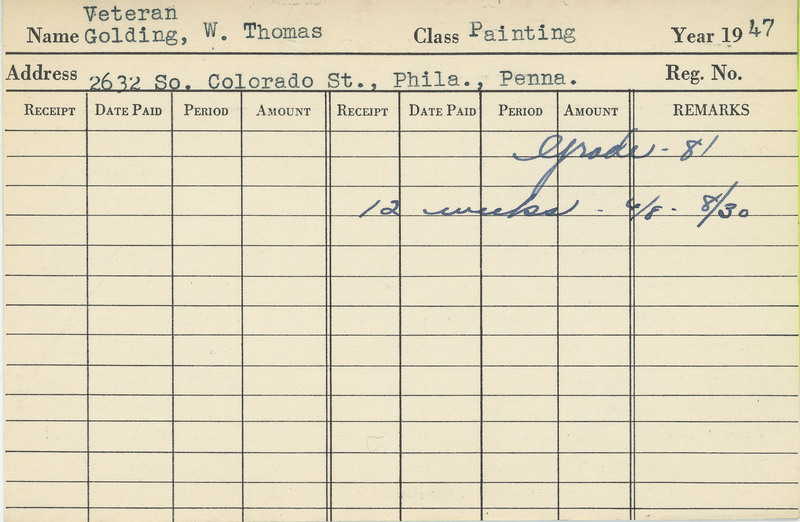 Veteran
Name Golding, W. Thomas Class Painting Year 1947
Address 2632 So. Colorado St., Phila., Penna. Reg. No.
RECEIPT DATE PAID PERIOD AMOUNT RECEIPT DATE PAID PERIOD AMOUNT REMARKS
Grade - 81
12 weeks - 6/8 - 8/30